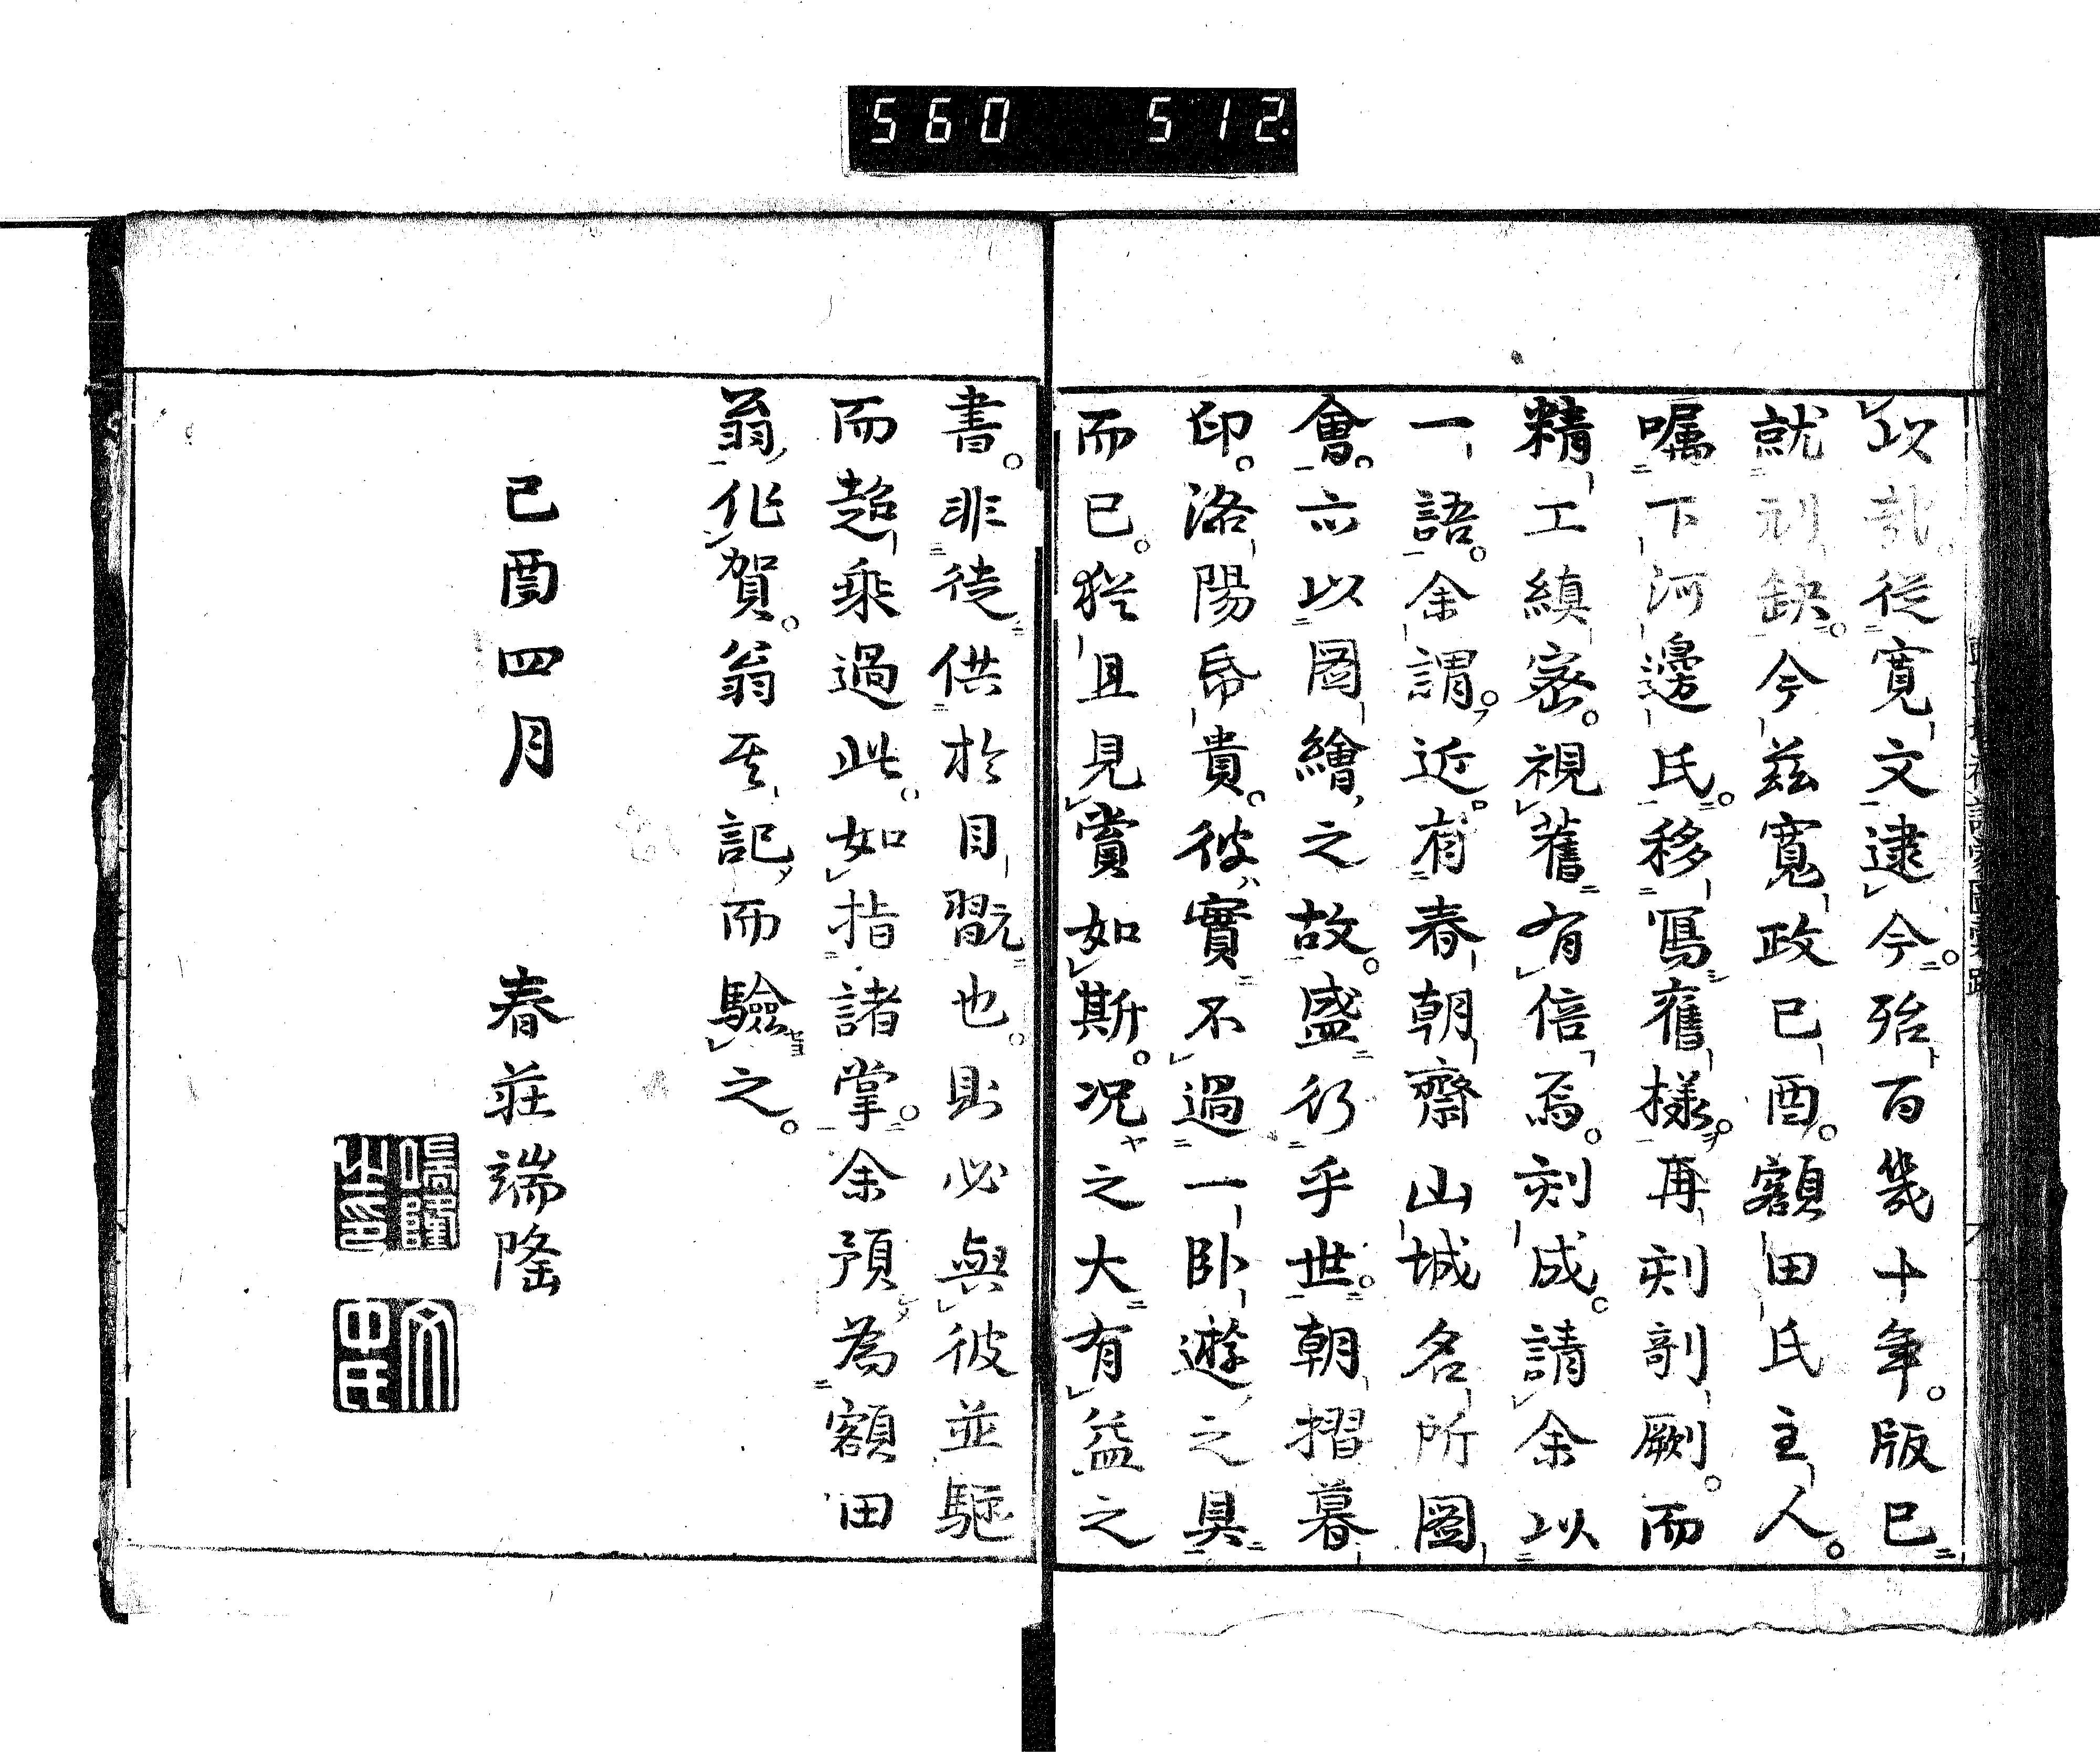 560 512.
以哉。従寛文逮今。殆百幾十年。版已
就刓缺。今茲寛政已酉。額田氏主人。
嘱下河邊氏。移寫舊様。再刻剞劂。而
精工縝密。視舊有倍焉。刻成。請余以
一語。余謂。近有春朝齋山城名所圖
會。亦以圖繪之故。盛行乎世。朝摺暮
印。洛陽帋貴。彼實不過一臥遊之具
而已。猶且見賞如斯。况之大有益之
書。非徒供於目翫也。則必與彼並駆
而超乘過此。如指諸掌。余預為額田
翁作賀。翁其記而驗之。
己酉四月 春荘端隆